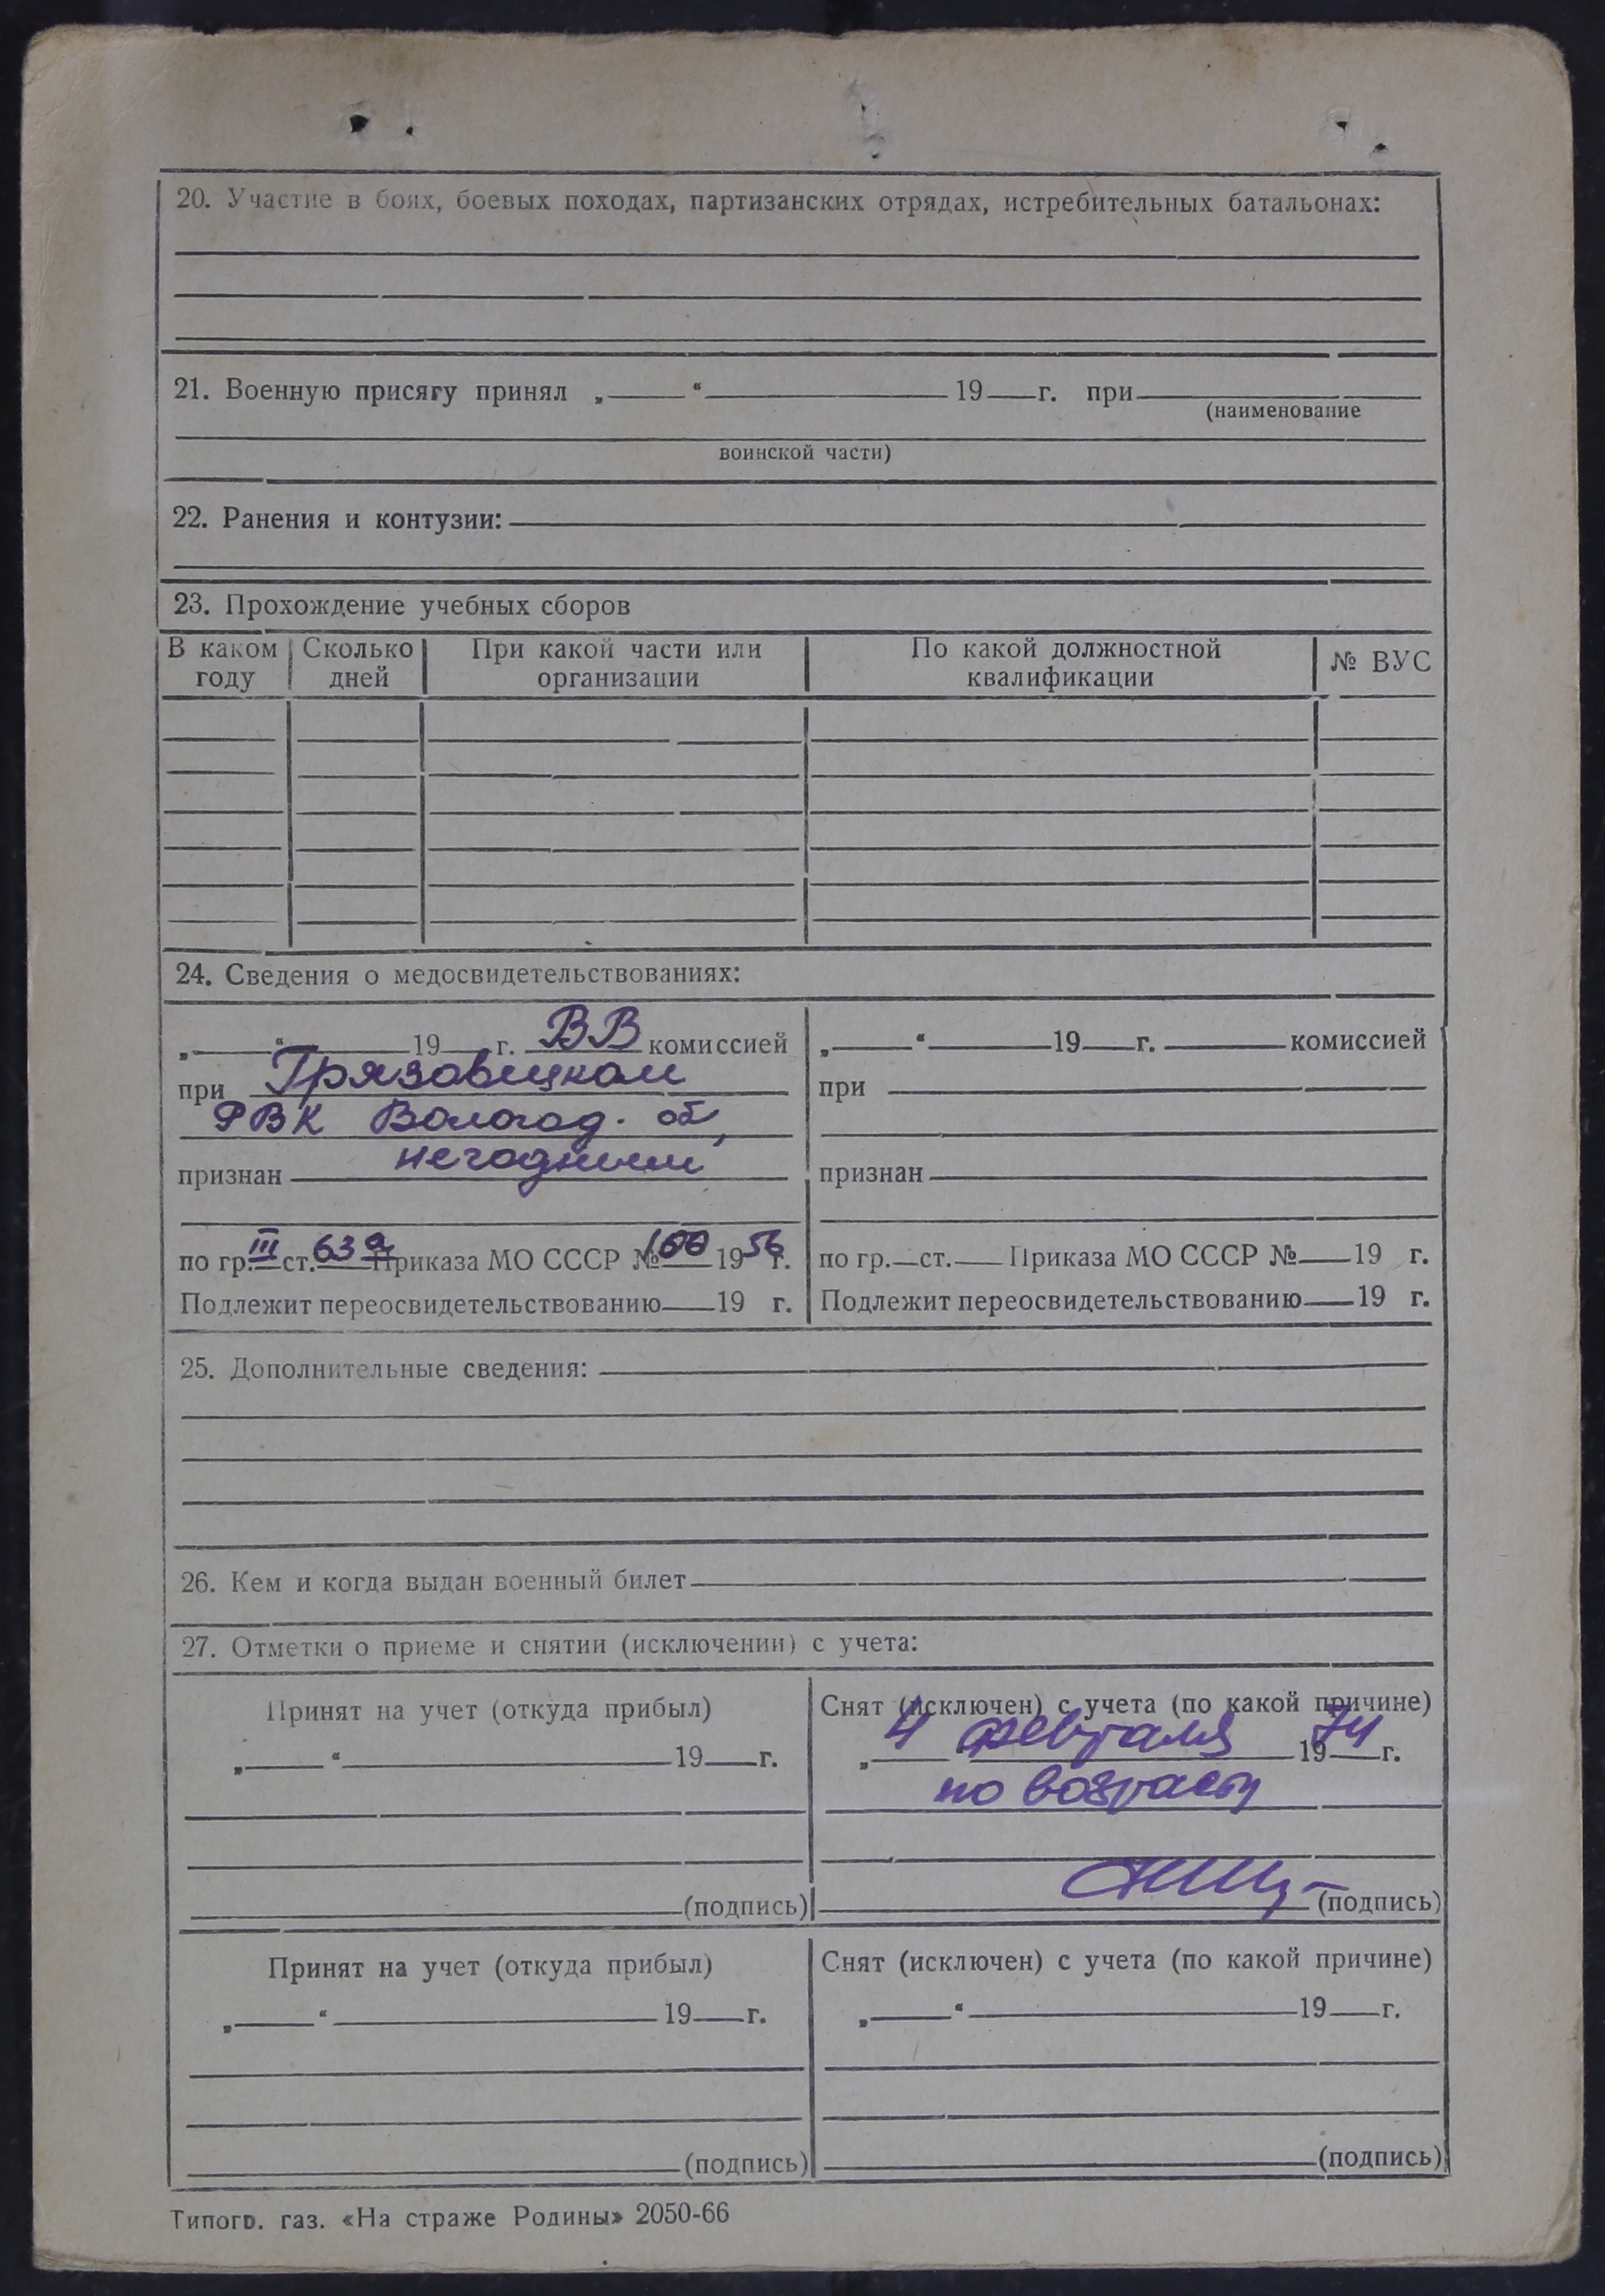 20. Участие в боях, боевых походах, партизанских отрядах, истребительных батальонах:
21. Военную присягу принял „ “ 19 г. при
(наименование
воинской части)
22. Ранения и контузии:
23. Прохождение учебных сборов
В каком году Сколько дней При какой части или организации По какой должностной квалификации № ВУС
24. Сведения о медосвидетельствованиях:
„ “ 19 г. ВВ комиссией
при Грязовецком
РВК Вологод. об,
признан негодным
по гр. III ст. 63а Приказа МО СССР № 100 1956 г.
Подлежит переосвидетельствованию 19 г.
„ “ 19 г. комиссией
при
признан
по гр. ст. Приказа МО СССР № 19 г.
Подлежит переосвидетельствованию 19 г.
25. Дополнительные сведения:
26. Кем и когда выдан военный билет
27. Отметки о приеме и снятии (исключении) с учета:
Принят на учет (откуда прибыл)
„ “ 19 г.
(подпись)
Снят (исключен) с учета (по какой причине)
„ 4 февраля 1974 г.
по возрасту
(подпись)
Принят на учет (откуда прибыл)
„ “ 19 г.
(подпись)
Снят (исключен) с учета (по какой причине)
„ “ 19 г.
(подпись)
Типогр. газ. «На страже Родины» 2050-66